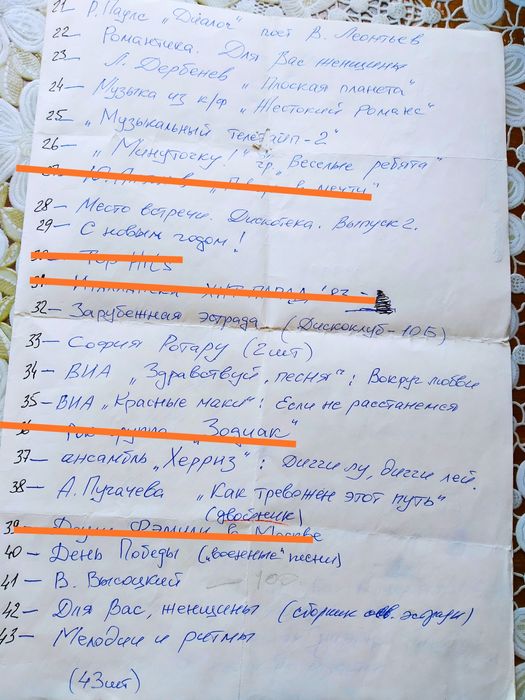 21 Р. Паулс „Диалог" поёт В. Леонтьев
22 Романтика. Для Вас женщины
23 — Л. Дербенев „Плоская планета"
24 — Музыка из к/ф „Жестокий Романс"
25 — „Музыкальный телетайп-2"
26 — „Минуточку!" гр. „Веселые ребята"
28 — Место встречи. Дискотека. Выпуск 2.
29 — С новым годом!
Top Hits
32 — Зарубежная эстрада (Дискоклуб-10Б)
33 — София Ротару (2шт)
34 — ВИА „Здравствуй, песня": Вокруг любви
35 — ВИА „Красные маки": Если не расстанемся
„Зодиак"
37 — ансамбль „Херриз": Дигги лу, дигги лей.
38 — А. Пугачева „Как тревожен этот путь"
(двойник)
39 в Москве
40 — День Победы („военные" песни)
41 — В. Высоцкий — 100
42 — Для Вас, женщины (сборник эстрады)
43 — Мелодии и ритмы
(43шт)